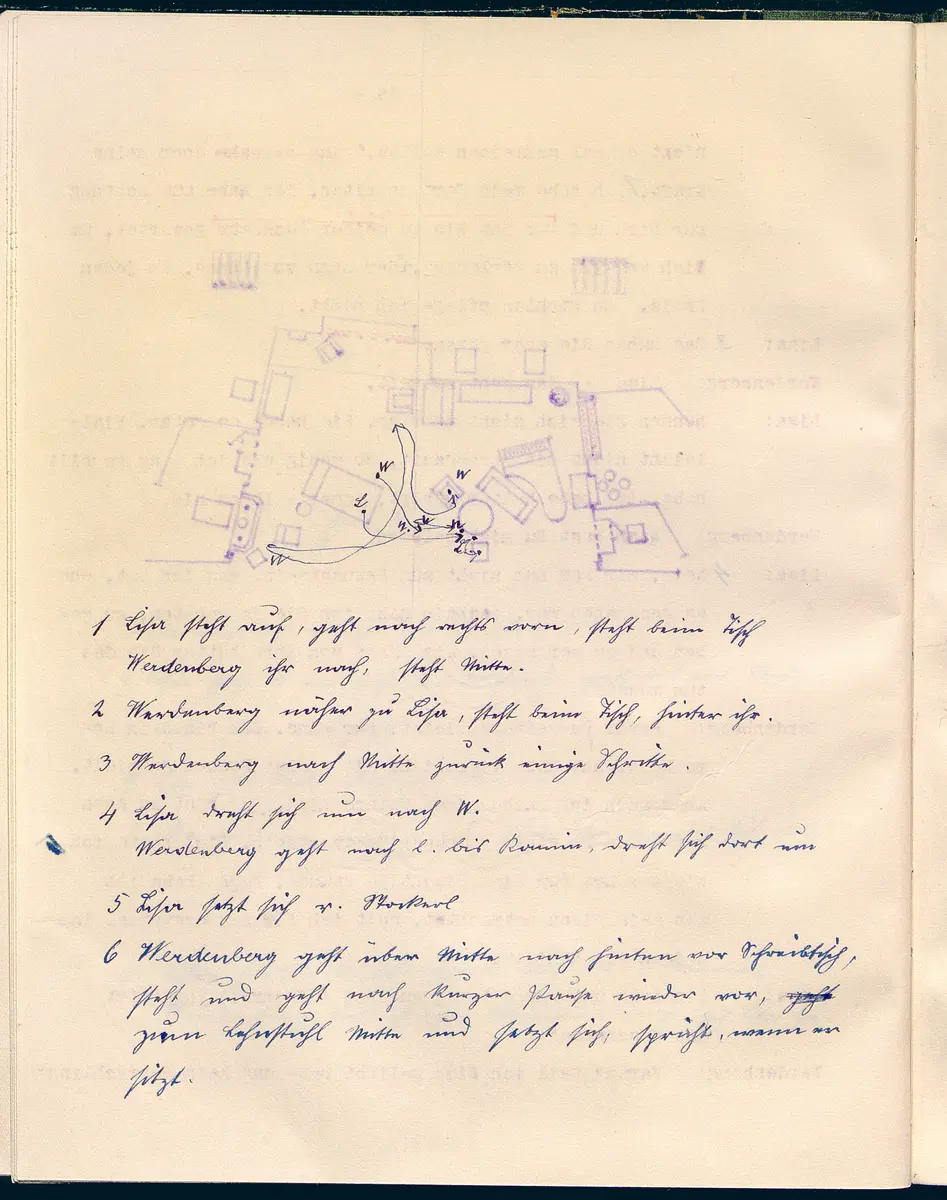 W
W
L
W
W
W
1 Lisa steht auf, geht nach rechts vorn, steht beim Tisch
Werdenberg ihr nach, steht Mitte.
2 Werdenberg näher zu Lisa, steht beim Tisch, hinter ihr.
3 Werdenberg nach Mitte zurück einige Schritte.
4 Lisa dreht sich um nach W.
Werdenberg geht nach l. bis Kamin, dreht sich dort um
5 Lisa setzt sich r. Stockerl
6 Werdenberg geht über Mitte nach hinten vor Schreibtisch,
steht und geht nach kurzer Pause wieder vor, geht
zum Lehnstuhl Mitte und setzt sich, spricht, wenn er
sitzt.